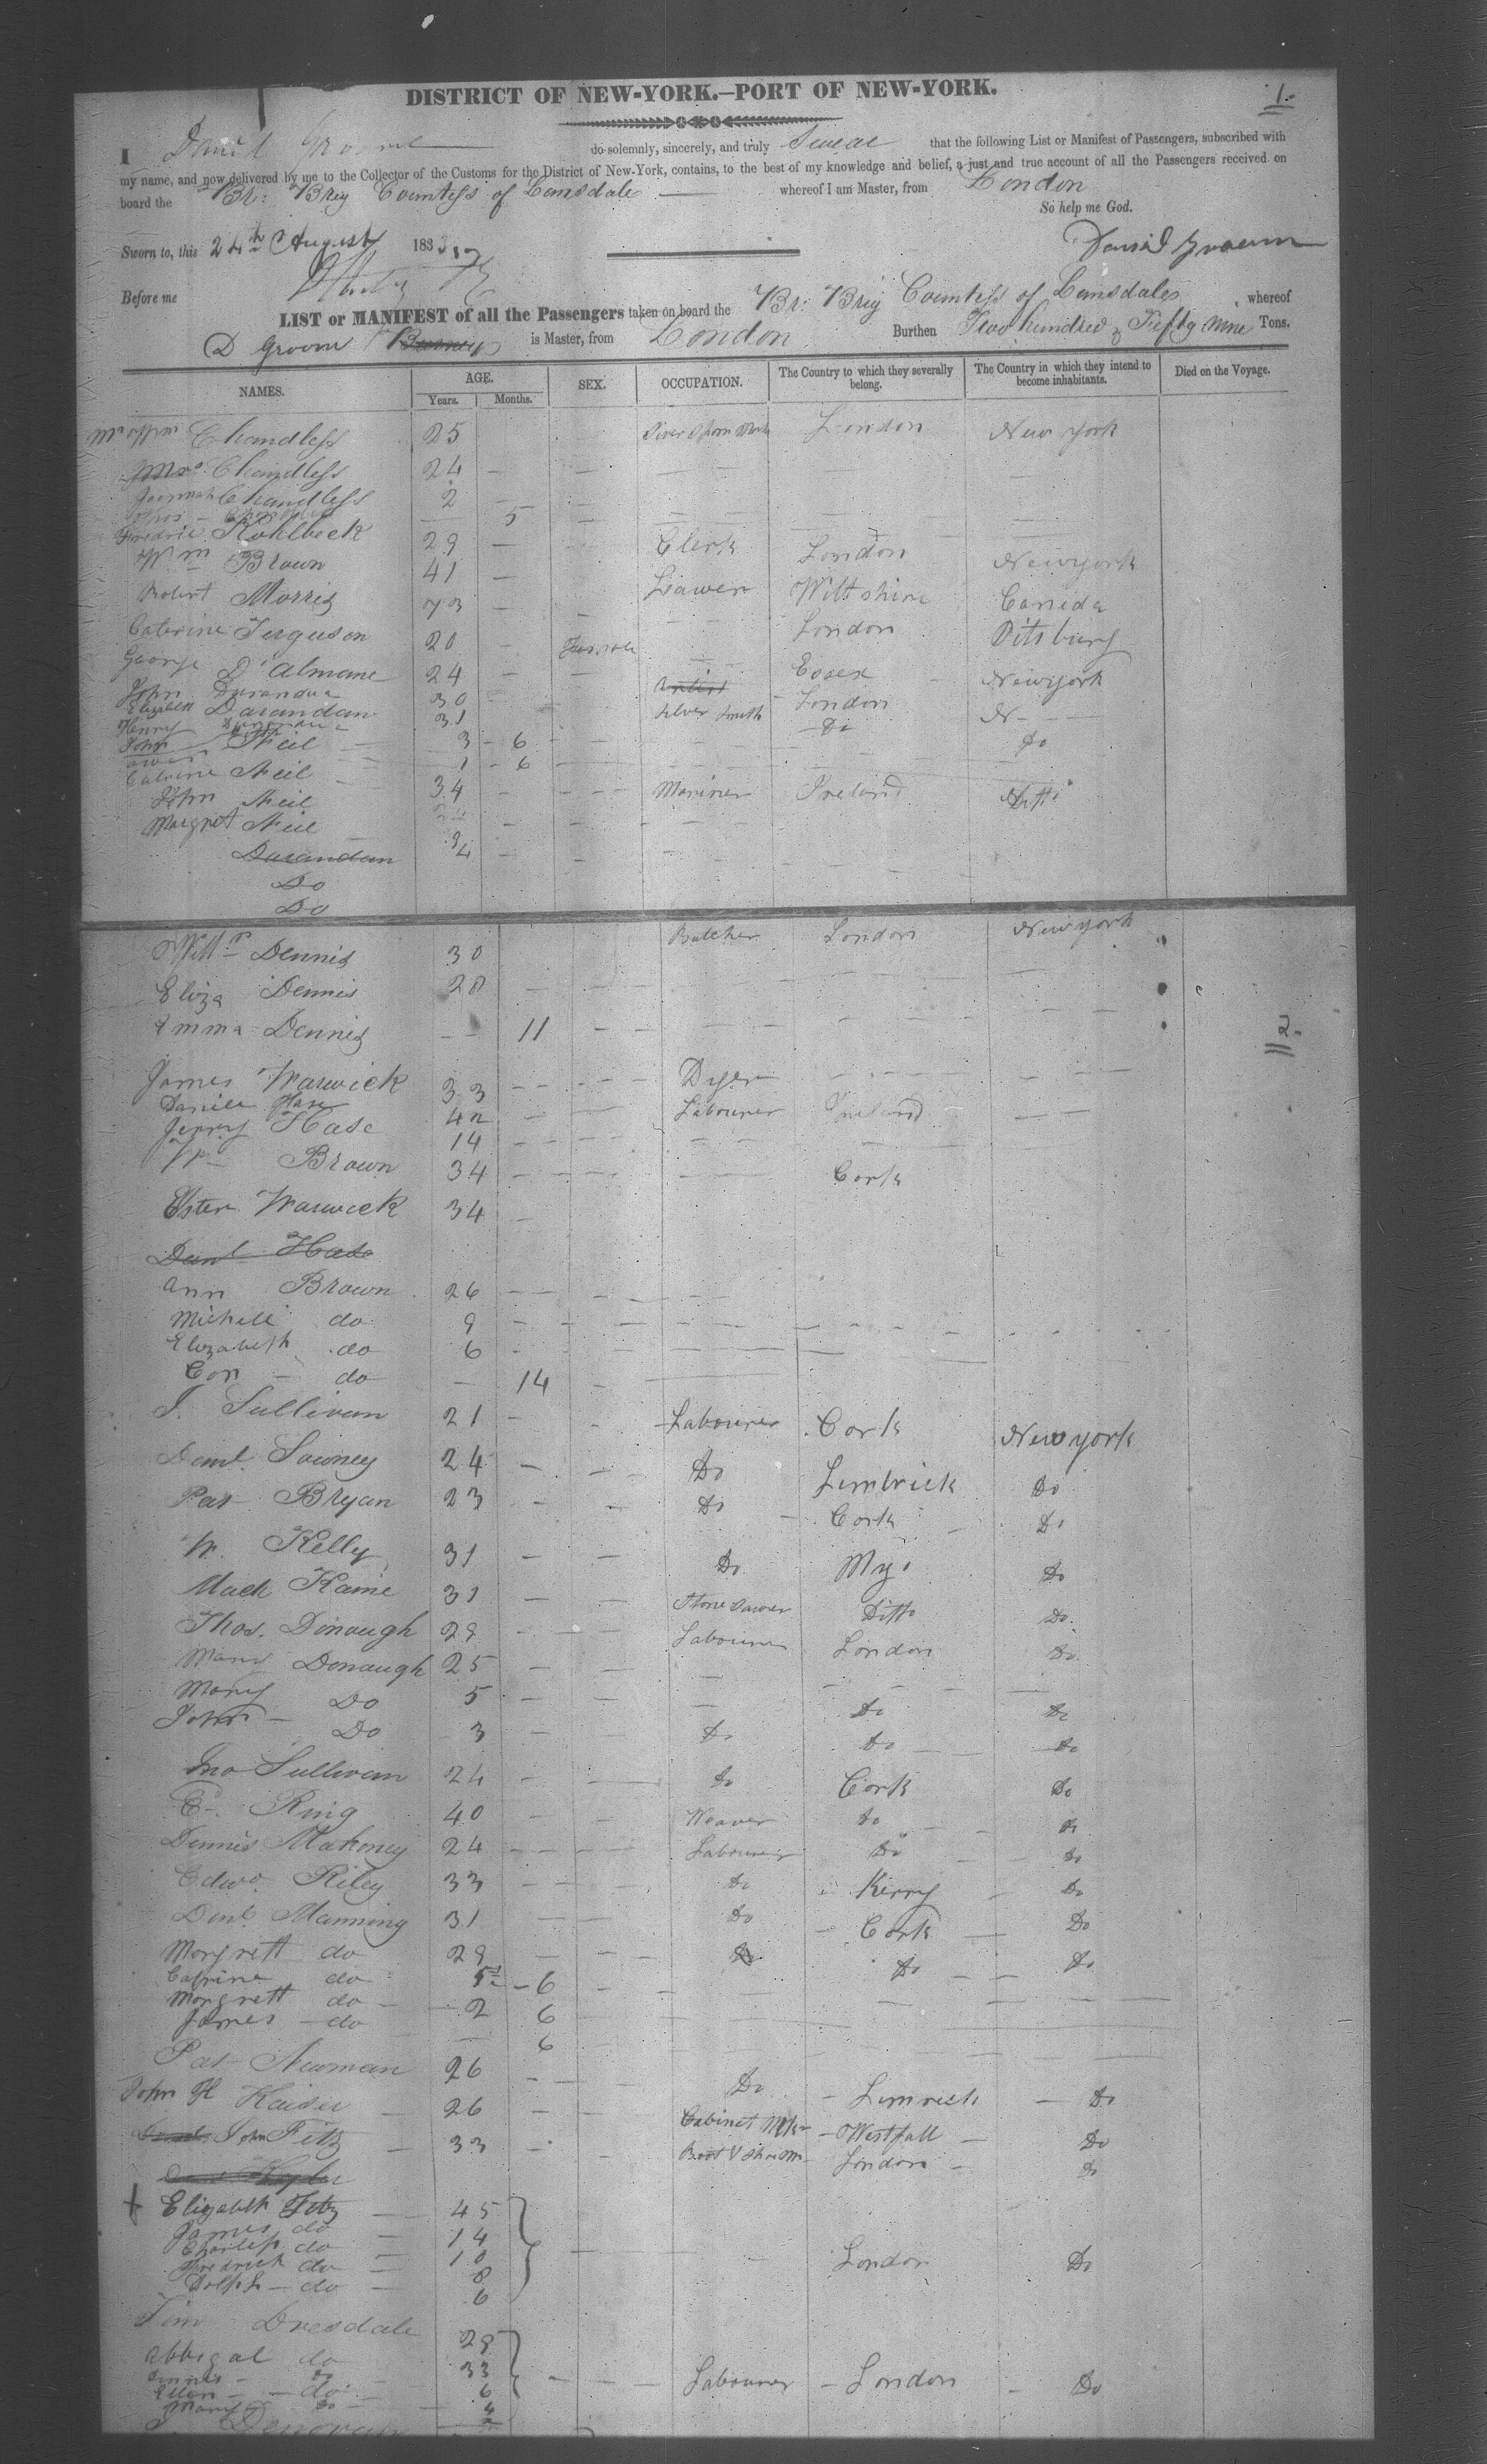 DISTRICT OF NEW-YORK.—PORT OF NEW-YORK.
1.
I Daniel Groome do solemnly, sincerely, and truly Swear that the following List or Manifest of Passengers, subscribed with
my name, and now delivered by me to the Collector of the Customs for the District of New-York, contains, to the best of my knowledge and belief, a just and true account of all the Passengers received on
board the Br: Brig Countess of Lonsdale whereof I am Master, from London
So help me God.
Sworn to, this 24th August 183
Daniel Groom
Before me
LIST or MANIFEST of all the Passengers taken on board the Br: Brig Countess of Lonsdales, whereof
D Groom is Master, from London Burthen Two hundred & Fifty Nine Tons.
NAMES. AGE. Years. Months. SEX. OCCUPATION. The Country to which they severally belong. The Country in which they intend to become inhabitants. Died on the Voyage.
Chandless 25 London New York
Mrs Chandless 24
Chandless 2
5
Fredric Kohlbeck 29 Clerk London Newyork
Wm Brown 41 Wiltshire Canida
Robert Morris 73 London Pitsburg
Caterine Ferguson 20
George D'Almane 24 Essex Newyork
John 30 Silver Smith London N
Elizabeth Darandan 31 Do
Henry 3 6 Do
John Neil 1 6
Catrine Neil 34 Mariner Ireland Ditto
John Neil
Margret Neil
Darandan
Do
Do
Willm Dennis 30 Butcher London New york
Eliza Dennis 28
Emma Dennis 11
2
James Warwick 33 Dyer
Daniel Hase 42 Labourer Ireland
Jerry Hase 14
Wm Brown 34 Cork
Ester Warwick 34
Danl Hase
Ann Brown 26
Michell do 9
Elizabeth do 6
Con do 14
J. Sullivan 21 Labourer Cork New york
Danl. Sowney 24 Do Limbrick Do
Pat Bryan 23 Do Cork Do
W. Kelly 31 Do Myo Do
Mack Kame 31 Stone Sawer Ditto Do
Thos. Donough 29 Labourer London Do
Mary Donaugh 25
Mary Do 5 Do Do
John Do 3 Do Do Do
Jno Sullivan 24 Do Cork Do
C. Ring 40 Weaver Do Do
Dennis Mahoney 24 Labourer Do Do
Edwd. Riley 33 Do Kerry Do
Danl. Manning 31 Do Cork Do
Morgrett do 29 Do Do Do
Catrine do 6
Morgrett do 2 6
James do 6
Pat Newman 26 Do Limrick Do
John H Kaiser 26 Cabinet Mkr Westfall Do
John Fitz 33 London Do
+ Elizabeth Fitz 45
James do 14
Charless do 10 London Do
Fredrick do 8
Dolph do 6
Tim Dresdale 29
Abbigal do 33
Dennis Do 6 Labourer London Do
Ellen do
Mary Do
Denovan